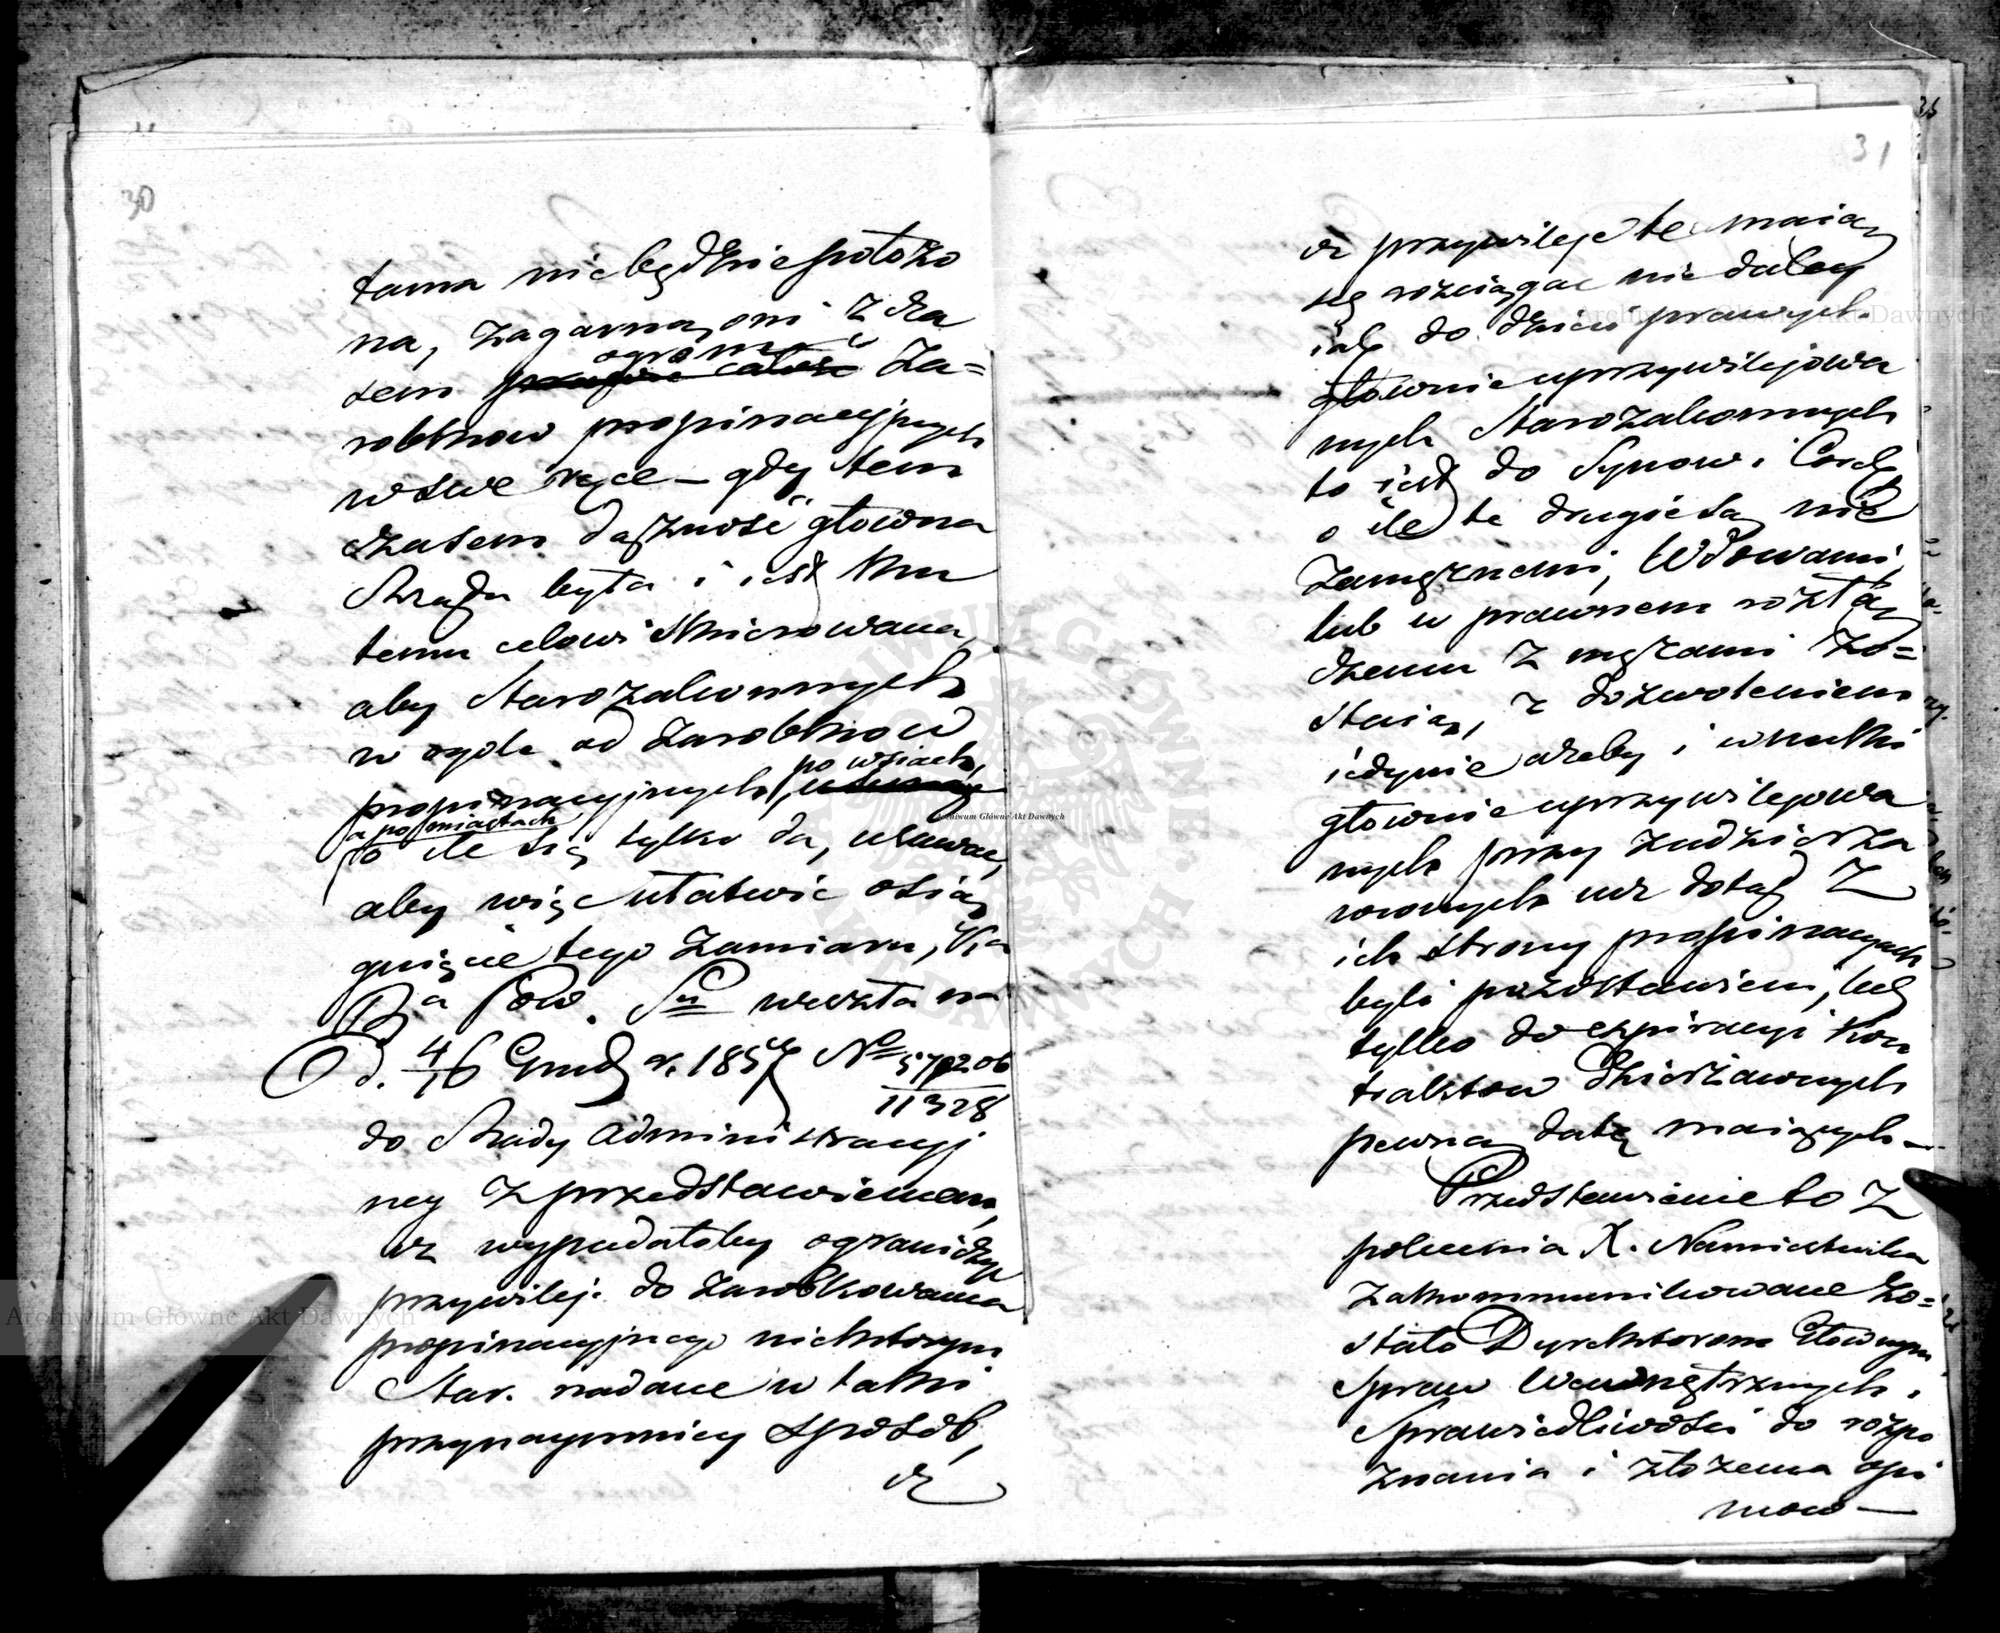 30
tama nie będzie położo
na, zagarną oni z cza
sem ogromną za=
robkow propinacyjnych
w swe ręce – gdy tem
czasem dążność głowna
Rządu była i iest ku
temu celowi skierowana,
aby Starozakonnych
w ogole od zarobkow
propinacyjnych, po wsiach,
a po miastach
o ile się tylko da, usuwać,
aby więc ułatwić osią
gnięcie tego zamiaru,
weszła na
d. 4/16 Grud. r. 1857 No 57202 06
11328
do Rady Administracyj
ney z przedstawieniem,
iż wypadałoby ograniczyć
przywileje do zarobkowania
propinacyjnego niektorym
Star. nadane w taki
przynaymniey sposób,
iż
31
iż przywileje te maią
się rozciągać nie daley
iak do dzieci prawych
głownie uprzywilejowa
nych Starozakonnych
to iest do Synow i Corek
o ile te drugie są nie
zamężnemi, Wdowami,
lub w prawnem rozłą
czeniu z mężami zo=
staią, z dozwoleniem
iedynie ażeby i wnuki
głownie uprzywilejowa
nych przy zadzierża
wionych iuż dotąd z
ich strony propinacyach
byli pozostawieni, lecz
tylko do expiracyi kon
traktow dzierżawnych
pewną datę maiących –
Przedstawienie to z
polecenia X. Namiestnika
zakommunikowane zo=
stało Dyrektorom Głownym
Spraw Wewnętrznych i
Sprawiedliwości do rozpo
znania i złożenia opi
niow –
Archiwum Główne Akt Dawnych